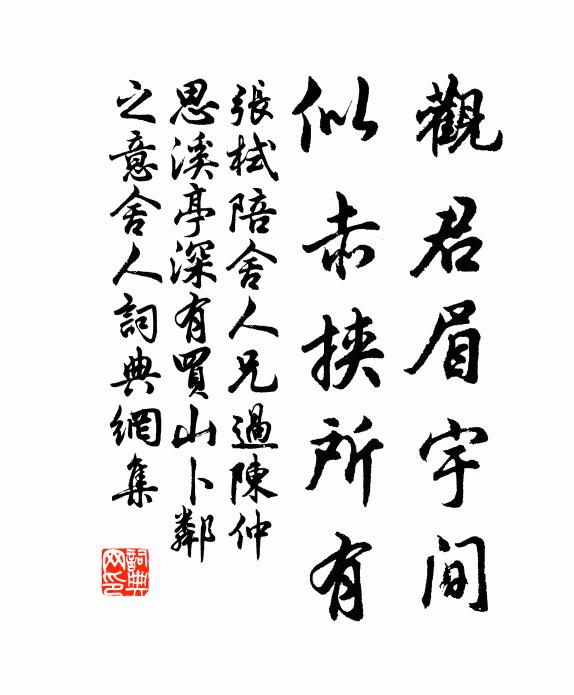 觀君眉宇间
似赤挾所有
張栻陪舍人兄過陳仲
思溪亭深有買山卜鄰
之意舍人詞典網集
詞典網印